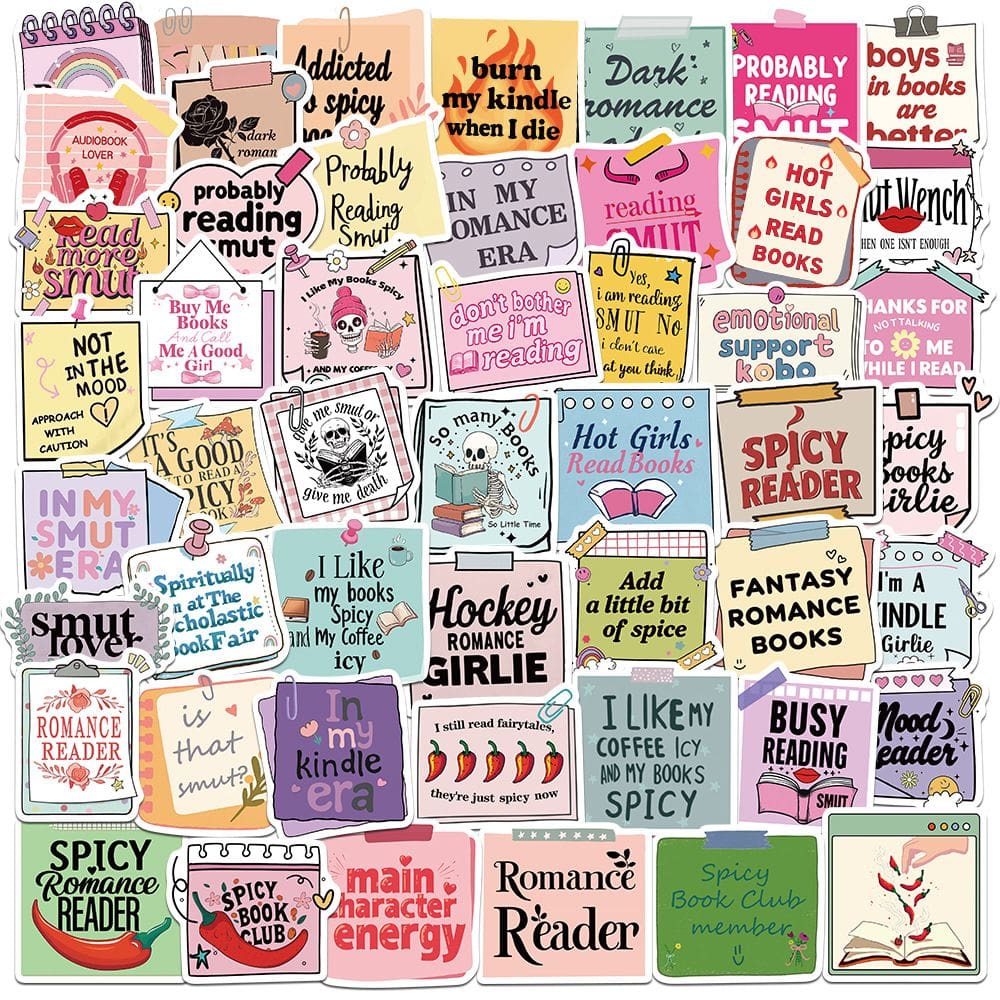 Addicted
to spicy
burn
my kindle
when I die
Dark
romance
PROBABLY
READING
SMUT
boys
in books
are
better
AUDIOBOOK
LOVER
dark
roman
probably
reading
smut
Probably
Reading
Smut
IN MY
ROMANCE
ERA
reading
SMUT
HOT
GIRLS
READ
BOOKS
Wench
WHEN ONE ISN'T ENOUGH
Read
more
smut
Buy Me
Books
And Call
Me A Good
Girl
I Like My Books Spicy
AND MY COFFEE
don't bother
me i'm
reading
Yes,
i am reading
SMUT No
i don't care
what you think
emotional
support
kobo
THANKS FOR
NOT TALKING
TO ME
WHILE I READ
NOT
IN THE
MOOD
APPROACH
WITH
CAUTION
IT'S
A GOOD
TO READ A
SPICY
BOOK
give me smut or
give me death
So many Books
So Little Time
Hot Girls
Read Books
SPICY
READER
Spicy
Books
Girlie
IN MY
SMUT
ERA
Spiritually
I'm at The
Scholastic
Book Fair
I Like
my books
Spicy
and My Coffee
icy
Hockey
ROMANCE
GIRLIE
Add
a little bit
of spice
FANTASY
ROMANCE
BOOKS
I'm A
KINDLE
Girlie
smut
lover
ROMANCE
READER
is
that
smut?
In
my
kindle
era
I still read fairytales,
they're just spicy now
I LIKE MY
COFFEE ICY
AND MY BOOKS
SPICY
BUSY
READING
SMUT
Mood
Reader
SPICY
Romance
READER
SPICY
BOOK
CLUB
main
character
energy
Romance
Reader
Spicy
Book Club
member